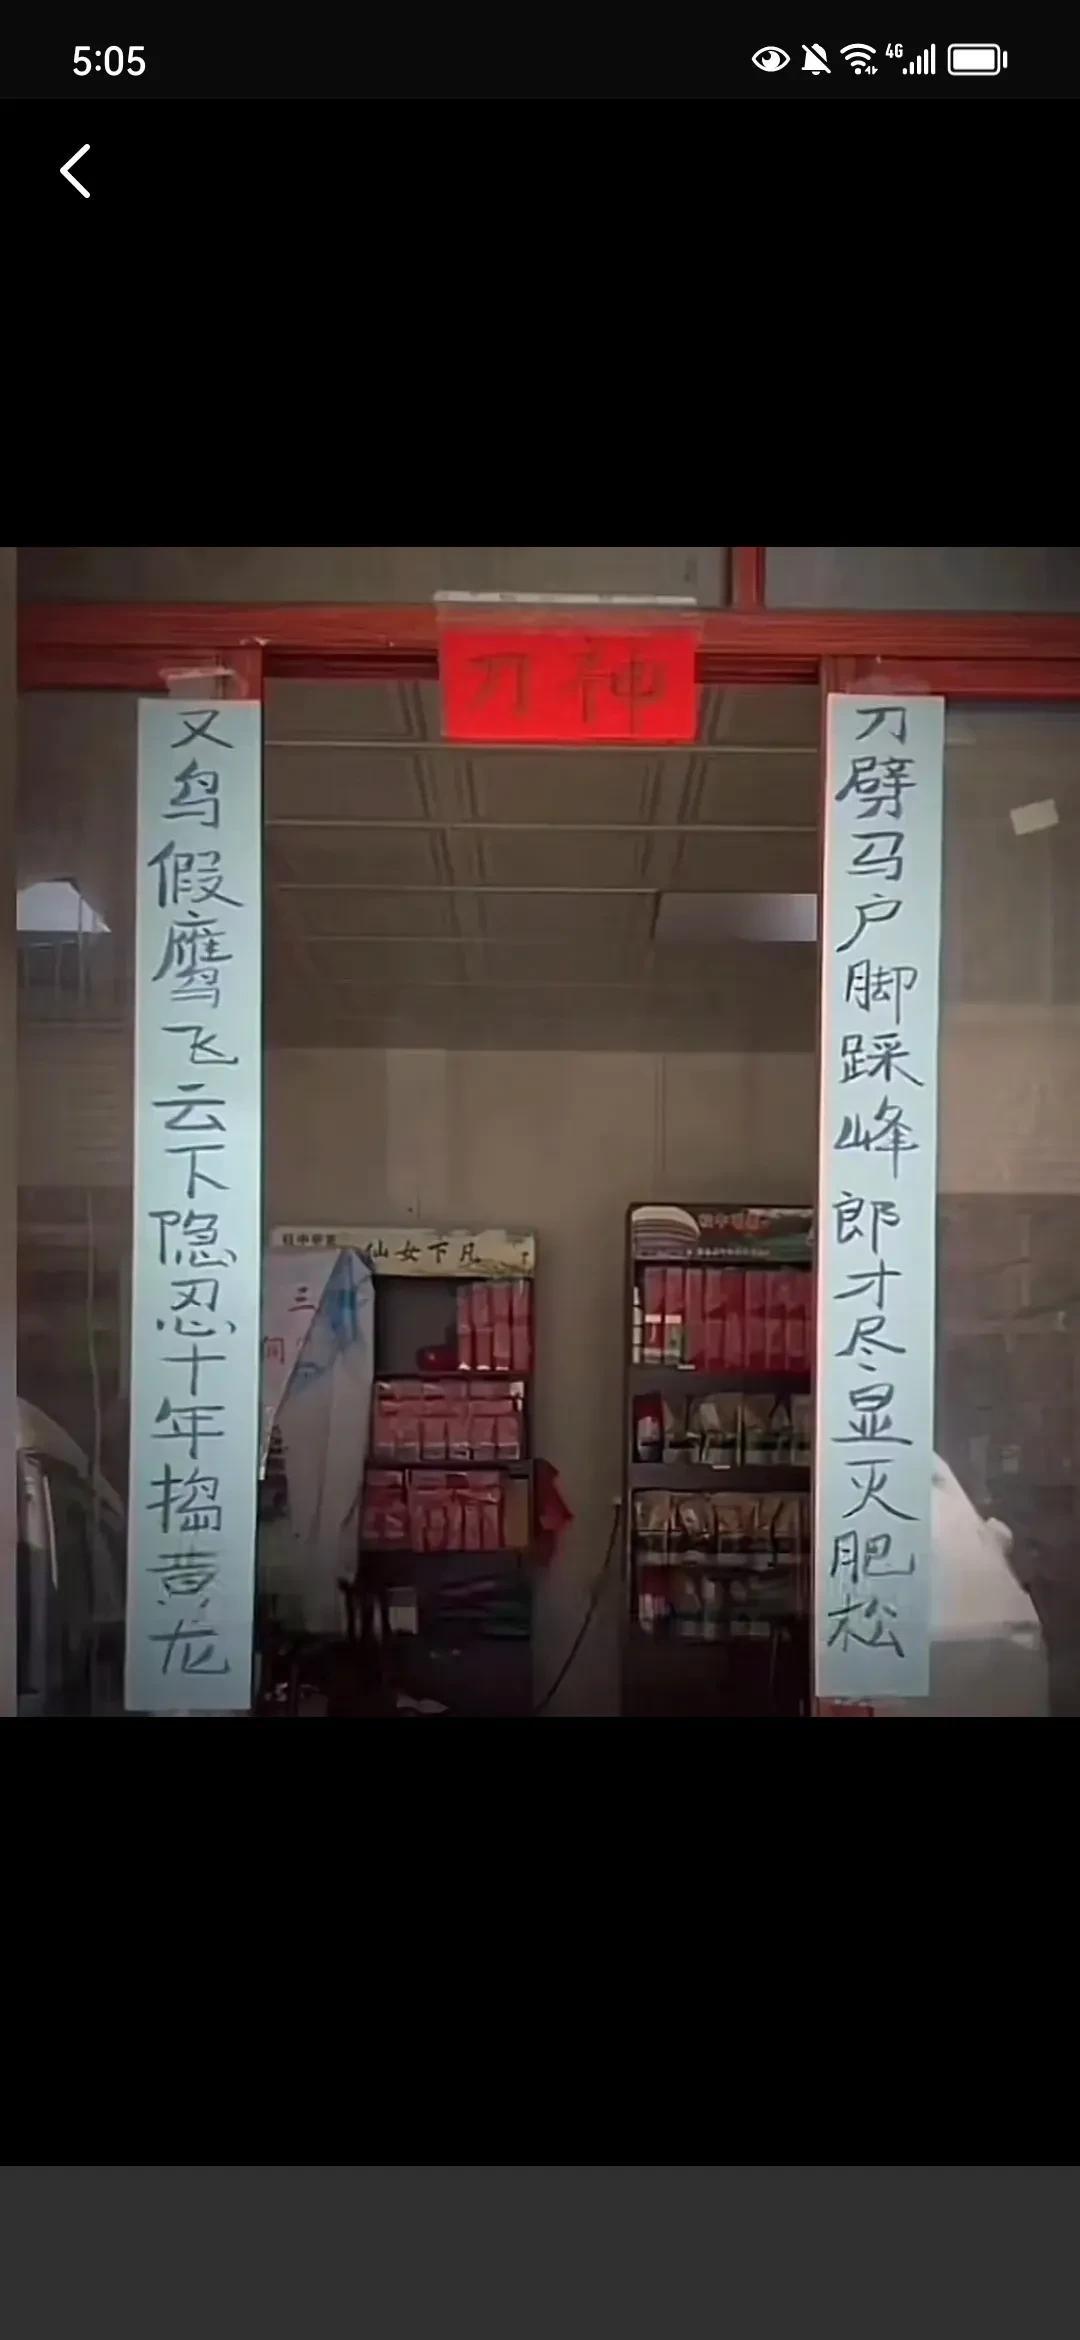 5:05
4G
刀神
刀劈马户脚踩峰郎才尽显灭肥松
又鸟假鹰飞云下隐忍十年捣黄龙
仙女下凡
三